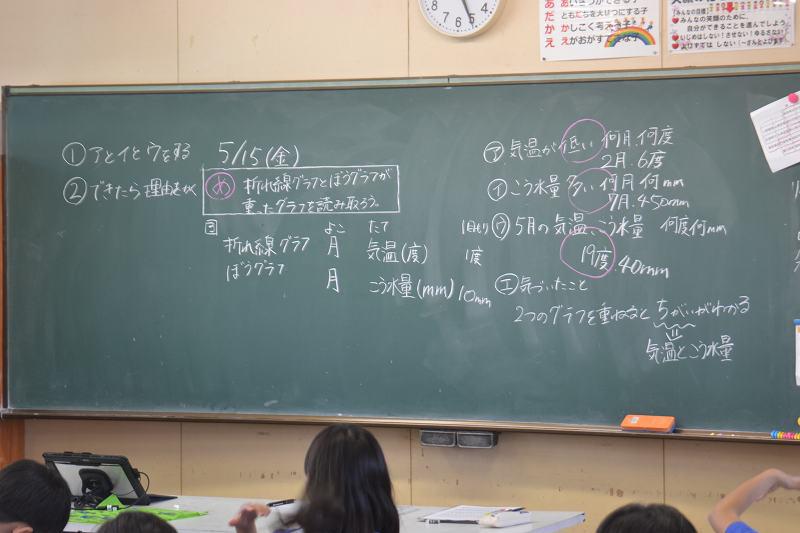 ① アとイとウをする
② できたら理由をかく
5/15(金)
め 折れ線グラフとぼうグラフが
重ったグラフを読み取ろう。
よこ たて
折れ線グラフ 月 気温(度) 1度
ぼうグラフ 月 こう水量(mm) 10mm
1目もり
ア 気温が低い 何月.何度
2月.6度
イ こう水量 多い 何月 何mm
7月.450mm
ウ 5月の気温、こう水量 何度何mm
19度.40mm
エ 気づいたこと
2つのグラフを重ねると ちがいがわかる
気温とこう水量
あ
だ ともだちを大せつにする子
か かしこく考える子
え えがおがすてきな子
みんなの笑顔のために、
自分ができることを進んでしよう
いじめはしない!させない!ゆるさない